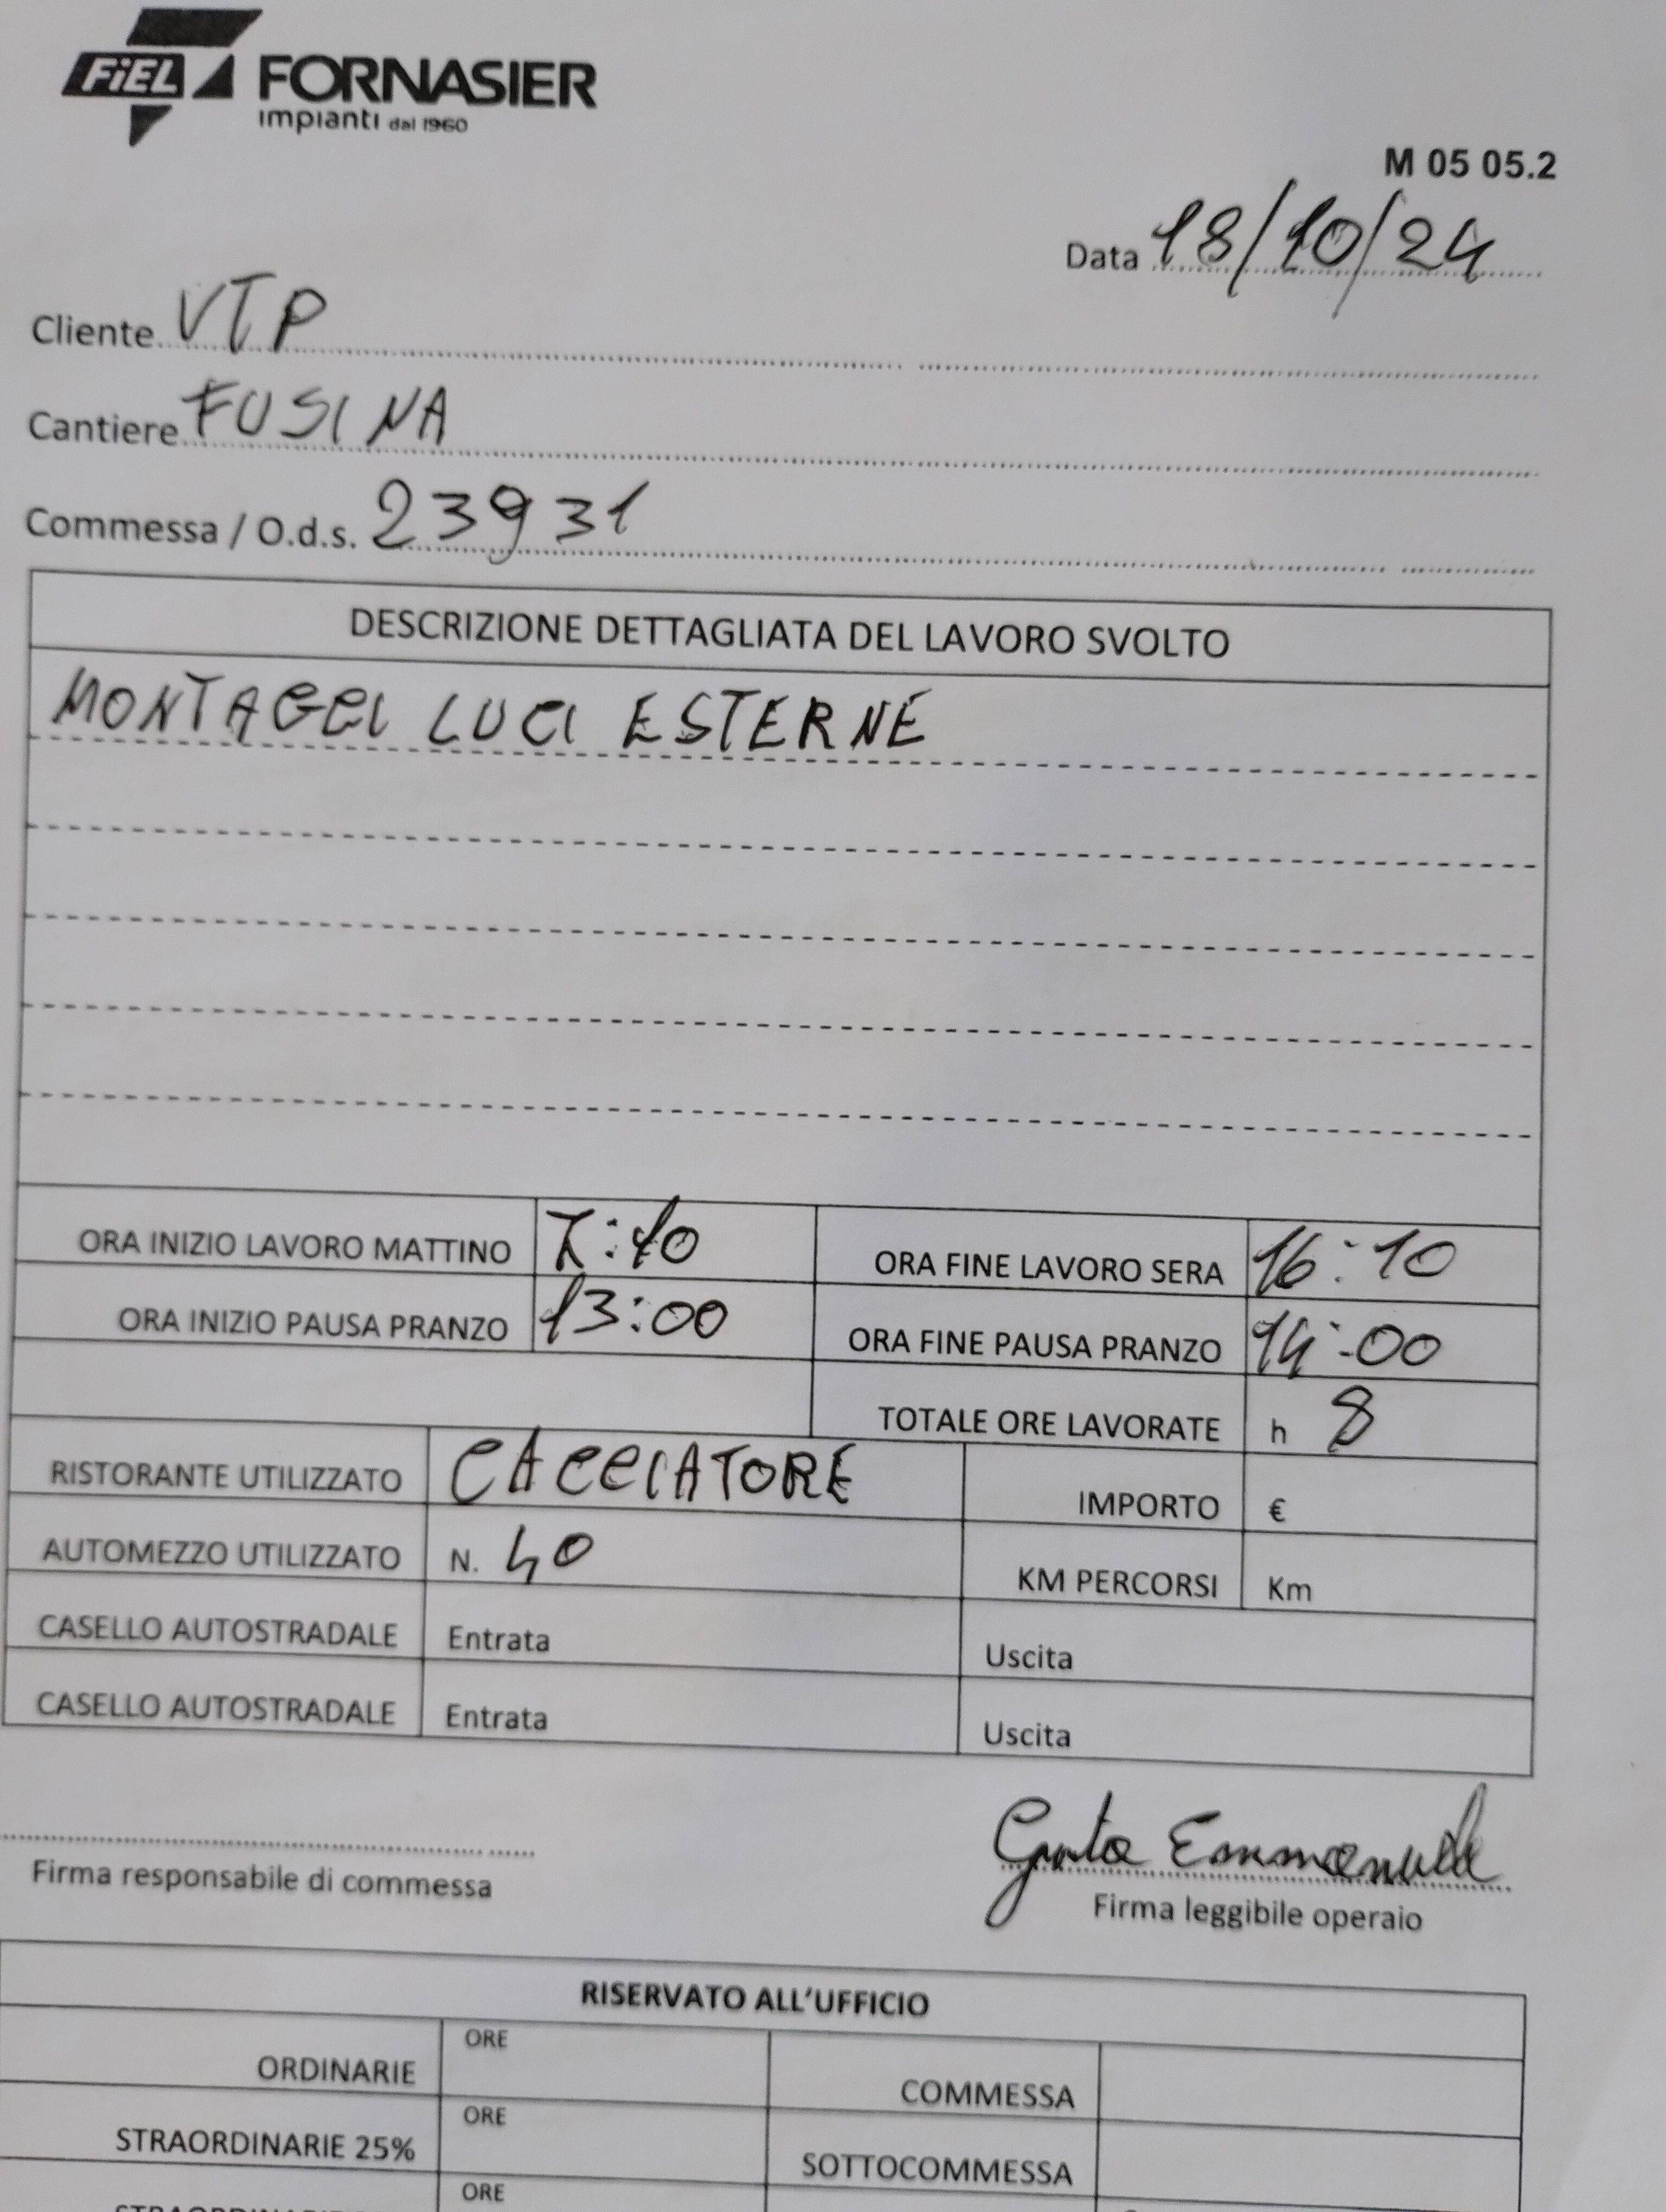 FiEL FORNASIER
impianti dal 1960
M 05 05.2
Data 18/10/24
Cliente VTP
Cantiere FUSINA
Commessa / O.d.s. 23931
DESCRIZIONE DETTAGLIATA DEL LAVORO SVOLTO
MONTAGGI LUCI ESTERNE
ORA INIZIO LAVORO MATTINO 7:10 ORA FINE LAVORO SERA 16:10
ORA INIZIO PAUSA PRANZO 13:00 ORA FINE PAUSA PRANZO 14:00
TOTALE ORE LAVORATE h 8
RISTORANTE UTILIZZATO CACCIATORE IMPORTO €
AUTOMEZZO UTILIZZATO N. 40 KM PERCORSI Km
CASELLO AUTOSTRADALE Entrata Uscita
CASELLO AUTOSTRADALE Entrata Uscita
Emmanuele
Firma responsabile di commessa Firma leggibile operaio
RISERVATO ALL'UFFICIO
ORDINARIE ORE COMMESSA
STRAORDINARIE 25% ORE SOTTOCOMMESSA
ORE